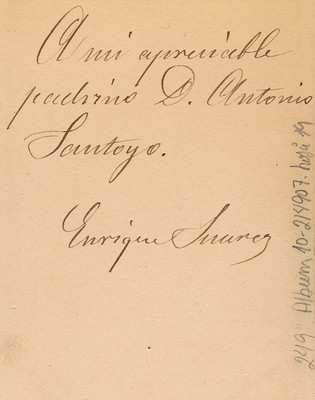 A mi apreciable
padrino D. Antonio
Santoyo.
Enrique Suarez
Album 10-214907. hoja 19